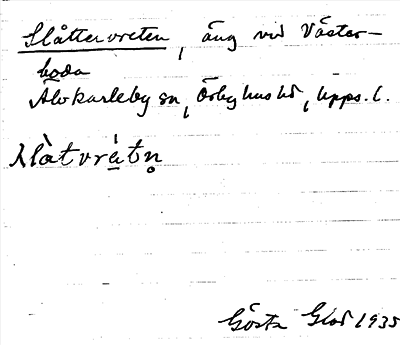 Slåttervreten, äng vid Väster-
boda
Älvkarleby sn, Örbyhus hd, Upps. l.
slàtvrǻtn̥
Gösta Glad 1935